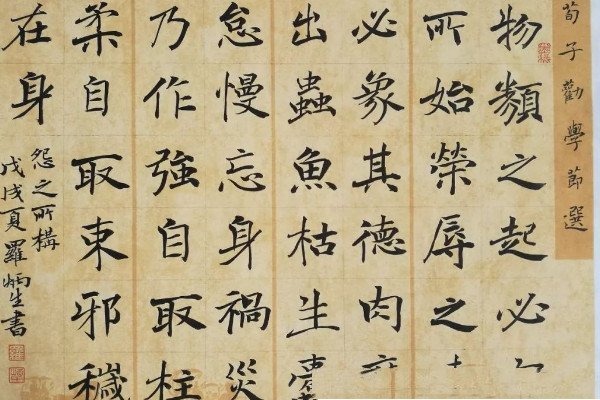 荀子勸學節選
物類之起必
所始榮辱之
必象其德肉
出蟲魚枯生
怠慢忘身禍災
乃作強自取柱
柔自取束邪穢
在身
怨之所構
戊戌夏羅炳生書